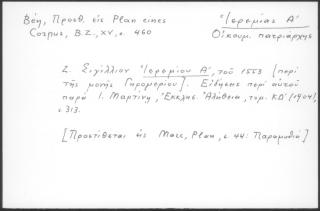 Βέη, Προσθ. εἰς Plan eines
Corpus, B.Z., XV, σ. 460
Ἱερεμίας Α'
Οἰκουμ. πατριάρχης
2. Σιγίλλιον Ἱερεμίου Α', τοῦ 1553 [περὶ
τῆς μονῆς Γηρομερίου]. Εἴδησις περὶ αὐτοῦ
παρὰ Ι. Μαρτίνῃ, Ἐκκλησ. Ἀλήθεια, τομ. ΚΔ' (1904),
σ 313.
[Προστίθεται εἰς Marc, Plan, σ 44: Παραμυθιά]